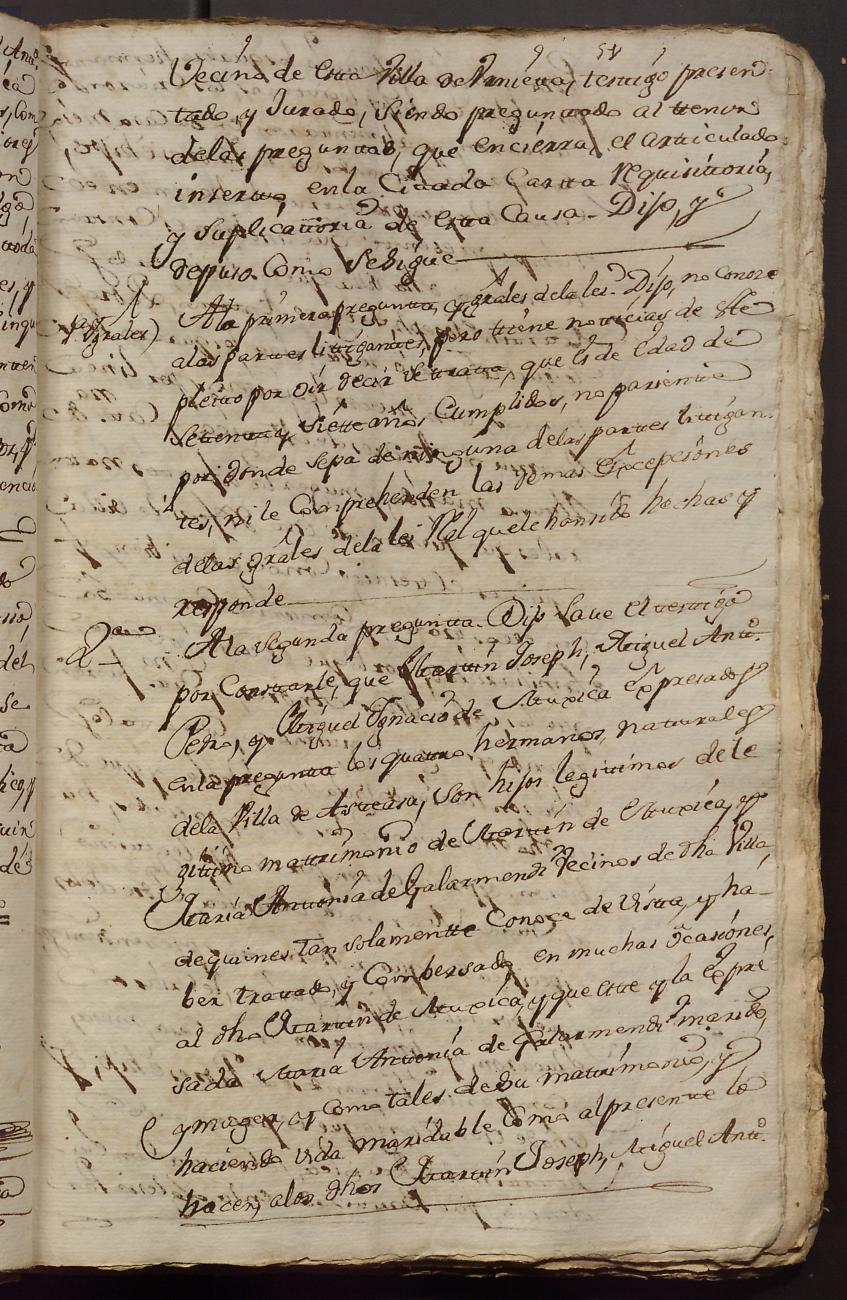 54
Vecino de esta Villa de Vrnieta, testigo presen-
tado, y Jurado, siendo preguntado al tenor
delas preguntas, que encierra el articulado
inserto, enla Citada Carta requisitoria,
y Suplicatoria de esta Causa. Dijo, y
depuso Como Sesigue
Ala primera pregunta, y grãles dela lei. Dijo, no conoce
grãles)
alas partes litigantes, pero tiene noticias de este
pleito por oir decir se trata, que es de Edad de
Setenta y siete años Cumplidos, no pariente
por donde sepa de ninguna delas partes litigan-
tes, ni le Comprehenden las demas Excepcsiones
delas grãles dela lei Rl. quele han sido hechas y
responde
2ª
Ala segunda pregunta. Dijo Save el testigo
por Constarle, que Martin Joseph, Miguel Antº.
Pedro, y Miguel Ignacio de Atuxica Expresados
enla pregunta los quatro hermanos, naturales
dela Villa de Asteasu, Son hijos legitimos de le
gitimo matrimonio de Martin de Atuxica, y
Maria Antonia de Galarmendi Vecinos de dha Villa,
de quines tan solamentte Conoce de Vista, y há
ber tratado, y Combersado en muchas Ocasiones,
al dho Martin de Atuxica, y que este y la Expre
sada Maria Antonia de Galarmendi marido,
y muger, y Como tales de su matrimonio, y
haciendo vida maridable Como al presente lo
hacen, alos dhos Martin Joseph, Miguel Antº.